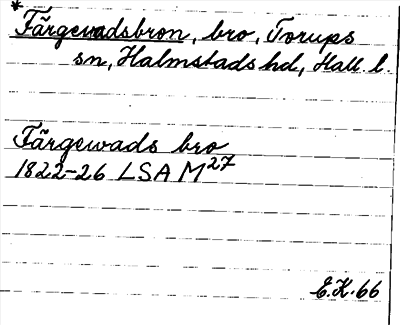 *Färgewadsbron, bro, Torups
sn, Halmstads hd, Hall. l.
Färgewads bro
1822-26 LSA M27
E.K.66